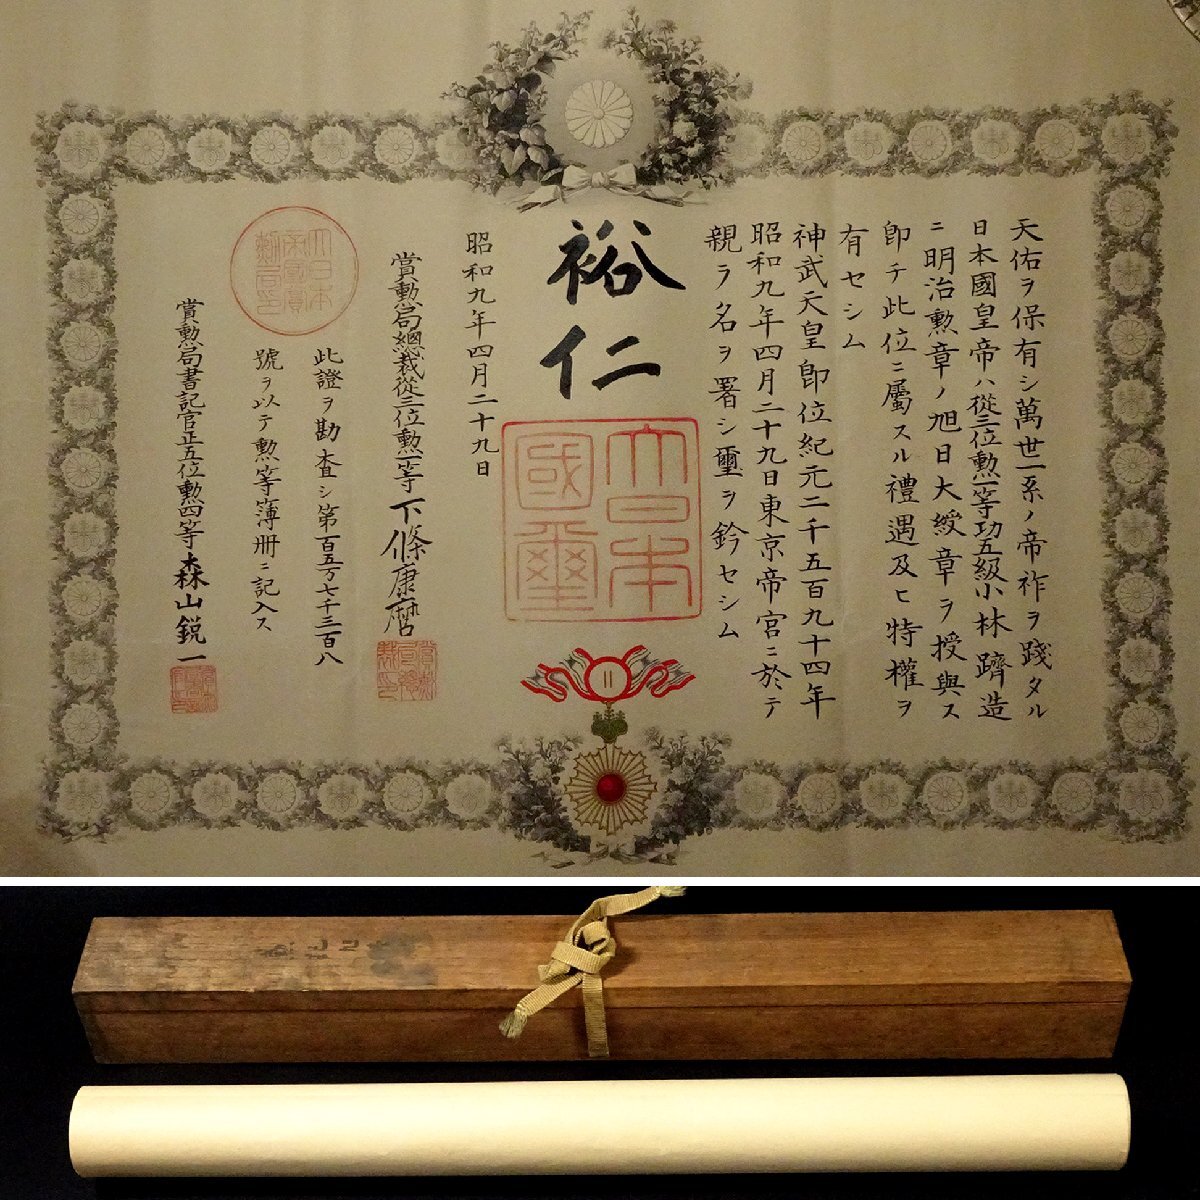 天佑ヲ保有シ萬世一系ノ帝祚ヲ踐タル
日本國皇帝ハ從三位勲一等功五級小林躋造
ニ明治勲章ノ旭日大綬章ヲ授與ス
卽チ此位ニ屬スル禮遇及ヒ特權ヲ
有セシム
神武天皇卽位紀元二千五百九十四年
昭和九年四月二十九日東京帝宮ニ於テ
親ラ名ヲ署シ璽ヲ鈐セシム
裕仁
大日本
國璽
昭和九年四月二十九日
賞勲局總裁從三位勲一等下條康麿
此證ヲ勘査シ第百五万七千三百八
號ヲ以テ勲等簿冊ニ記入ス
賞勲局書記官正五位勲四等森山鋭一